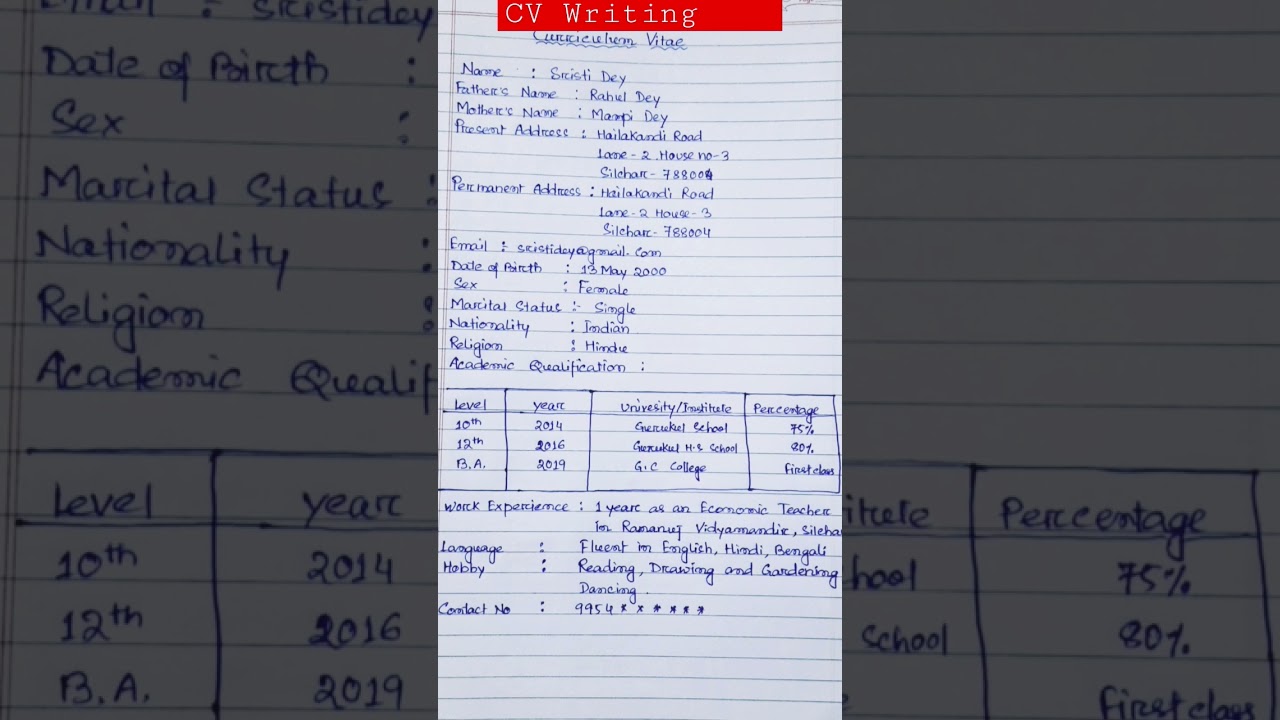 CV Writing
Curriculum Vitae
Name : Sristi Dey
Father's Name : Rahul Dey
Mother's Name : Mampi Dey
Present Address : Hailakandi Road
Lane - 2 House no - 3
Silchar - 788004
Permanent Address : Hailakandi Road
Lane - 2 House - 3
Silchar - 788004
Email : sristidey@gmail.com
Date of Birth : 13 May 2000
Sex : Female
Marital Status :- Single
Nationality : Indian
Religion : Hindu
Academic Qualification :
Level year Univesity/Institute Percentage
10th 2014 Gurukul School 75%
12th 2016 Gurukul H.S School 80%
B.A. 2019 G.C College first class
Work Experience : 1 year as an Economic Teacher
in Ramanuj Vidyamandir, Silcha
Language : Fluent in English, Hindi, Bengali
Hobby : Reading, Drawing and Gardening
Dancing.
Contact No : 9954 * * * * * *
Email : sristidey
Date of Birth :
Sex :
Marital Status :
Nationality :
Religion :
Academic Qualif
Level year itute Percentage
10th 2014 hool 75%
12th 2016 School 80%
B.A. 2019 first class